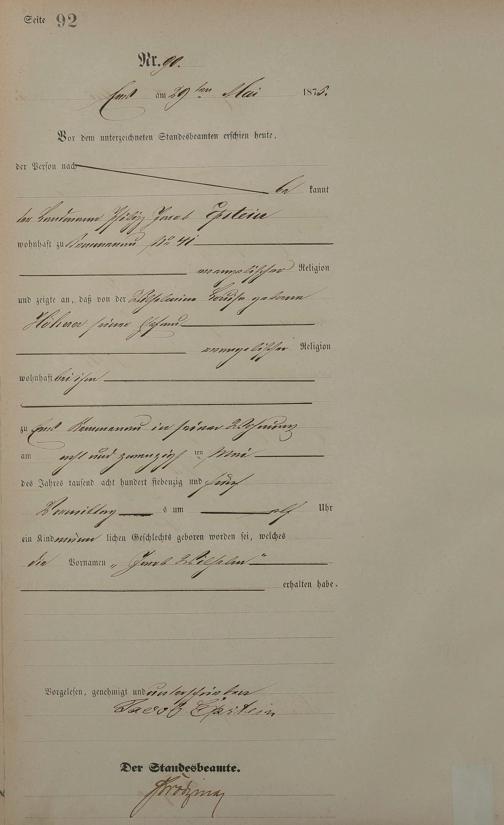 Seite 92
Nr. 90.
Ems am 29ten Mai 1875.
Vor dem unterzeichneten Standesbeamten erschien heute,
der Person nach
be kannt
der Landmann Philipp Jacob Epstein
wohnhaft zu No 41
evangelischer Religion
und zeigte an, daß von der Wilhelmine Louise geborne
seiner Ehefrau
evangelischer Religion
wohnhaft bei ihm
zu Ems in seiner Wohnung
am acht und zwanzigsten Mai
des Jahres tausend acht hundert siebenzig und fünf
Vormittags um elf Uhr
ein Kind männ lichen Geschlechts geboren worden sei, welches
die Vornamen „Jacob Wilhelm"
erhalten habe.
Vorgelesen, genehmigt und unterschrieben
Jacob Epstein
Der Standesbeamte.